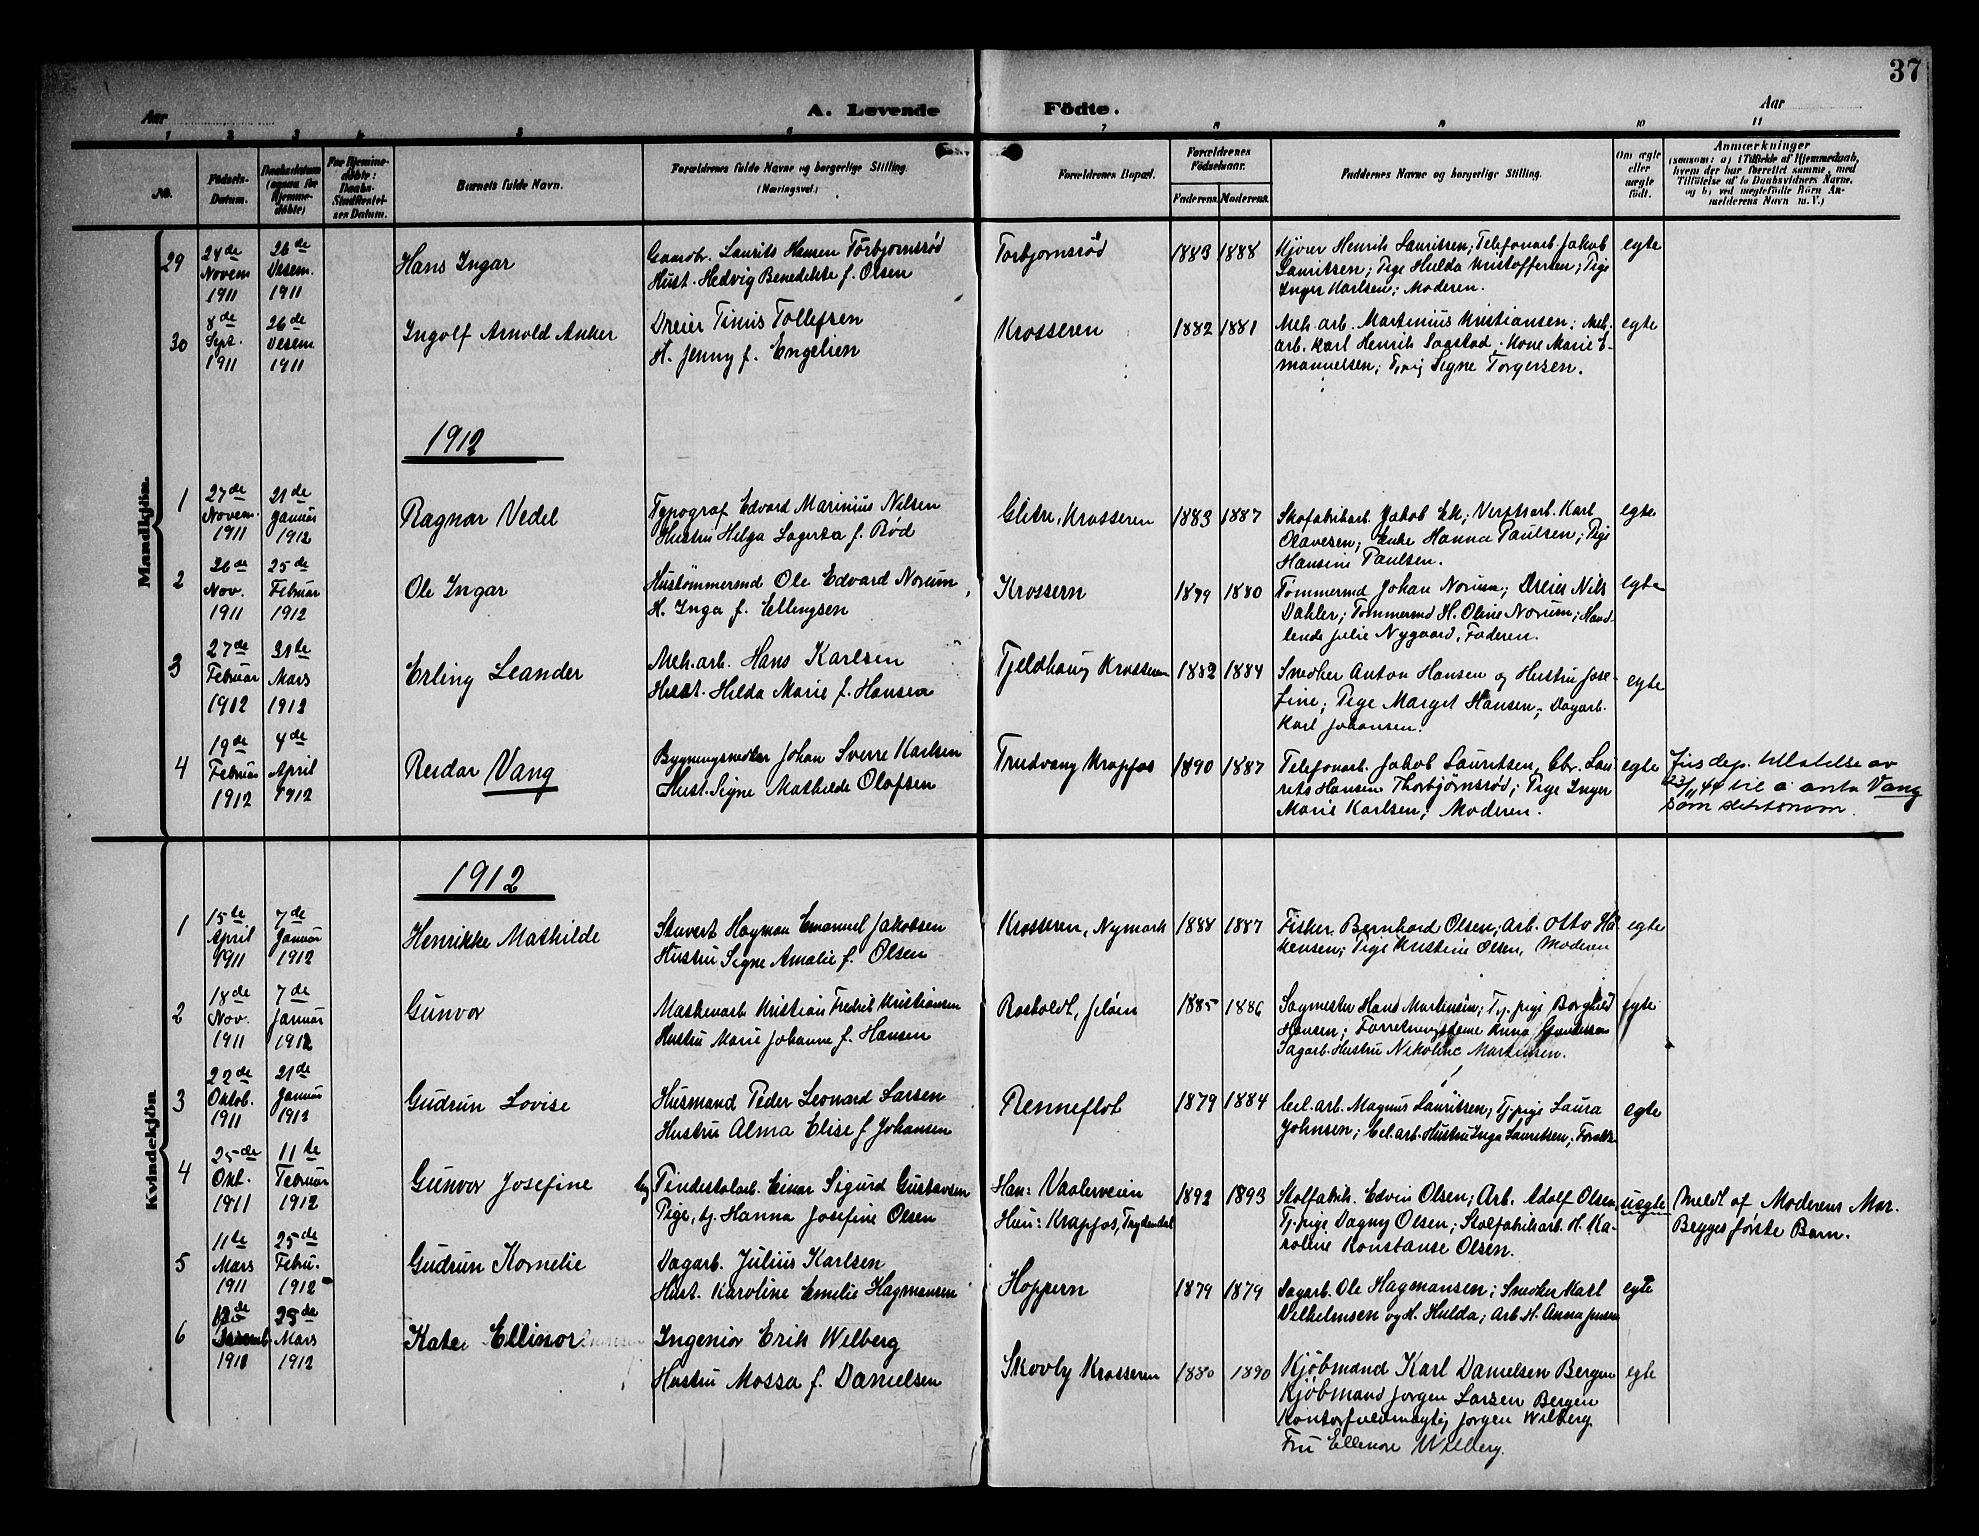 37
A. Levende Födte.
Aar Aar
1 2 3 4 5 6 7 8 9 10 11
No.
Födsels-Datum.
Daabsdatum (ogsaa for hjemmedöbte)
For hjemmedöbte: Daabs-Stadfæstelses Datum.
Barnets fulde Navn.
Forældrenes fulde Navne og borgerlige Stilling. (Næringsvei.)
Forældrenes Bopæl.
Forældrenes Födselsaar.
Faderens. Moderens.
Faddernes Navne og borgerlige Stilling.
Om ægte eller uægte födt.
Anmærkninger
(saasom: a) i Tilfælde af Hjemmedaab, hvem der har forrettet samme, med Tilföielse af to Daabsvidners Navne, og b) ved uægtefödte Börn Anmelderens Navn m. V.)
Mandkjön.
29
24de Novem 1911
26de Desem. 1911
Hans Ingar
Gaardbr. Laurits Hansen Torbjørnsrød
Hust. Hedvig Benedikte f. Olsen
Torbjørnsrød
1883 1888
Kjører Henrik Lauritsen; Telefonarb. Jakob
Lauritsen; Pige Hulda Kristoffersen; Pige
Inger Karlsen; Moderen.
egte
30
8de Sept. 1911
26de Desem 1911
Ingolf Arnold Anker
Dreier Tinus Tollefsen
H. Jenny f. Engelien
Krosseren
1882 1881
Mek. arb. Martinius Kristiansen; Mek.
arb. Karl Henrik Saastad. Kone Marie E-
manuelsen; Signe Torgersen.
egte
1912
1
27de Novem. 1911
21de Januar 1912
Ragnar Vedel
Typograf Edvard Marinius Nilsen
Hustru Helga f. Rød
Glitre, Krosseren
1883 1887
Skofabrikarb. Jakob Ek; Verftsarb. Karl
Olavesen; Enke Hanna Paulsen; Pige
Hansine Paulsen.
egte
2
26de Nov. 1911
25de Februar 1912
Ole Ingar
Hustømmermd Ole Edvard Norum
H. Inga f. Ellingsen
Krossern
1879 1880
Tømmermd Johan Norum; Dreier Nils
Dahler; Tømmermd H. Oline Norum; Hand-
lende Julie Nygaard, Faderen.
egte
3
27de Februar 1912
31te Mars 1912
Erling Leander
Mek. arb. Hans Karlsen
Hust. Hilda Marie f. Hansen
Fjeldhaug Krosseren
1882 1884
Snedker Anton Hansen og Hustru Jose-
fine; Pige Margit Hansen; Dagarb.
Karl Johansen.
egte
4
19de Februar 1912
4de April 1912
Reidar Vang
Bygningssnedker Johan Sverre Karlsen
Hust. Signe Mathilde Olafsen
Trudvang Krapfos
1890 1887
Telefonarb. Jakob Lauritsen, Gbr. Lau-
rits Hansen Thorbjørnsrød; Pige Inger
Marie Karlsen; Moderen.
egte
Jus.dep. tillatelse av
23/11 44 til å anta Vang
som slektsnavn.
Kvindekjön
1912
1
15te April 1911
7de Januar 1912
Henrikke Mathilde
Stuvert Hagman Emanuel Jakobsen
Hustru Signe Amalie f. Olsen
Krosseren, Nymark
1888 1887
Fisker Bernhard Olsen; Arb. Otto Hå-
kensen; Pige Kristine Olsen, Moderen
egte
2
18de Nov. 1911
7de Januar 1912
Gunvor
Maskenarb. Kristian Fredrik Kristiansen
Hustru Marie Johanne f. Hansen
Rosholdt, Jeløen
1885 1886
Sagmester Hans Martinsen; Tj. pige Borghild
Hansen; Forretningsdame Anna
Sagarb. Hustru Nikoline Martinsen.
egte
3
22de Oktob. 1911
21de Januar 1912
Gudrun Lovise
Husmand Peder Leonard Larsen
Hustru Alma Elise f. Johansen
Renneflot
1879 1884
Cel. arb. Magnus Lauritsen; Tj. pige Laura
Johnsen; Cel. arb. Hustru Inga Lauritsen;
egte
4
25de Okt. 1911
11te Februar 1912
Gunvor Josefine
Ug. Tindestolarb. Einar Sigurd Gustavsen
Pige, tj. Hanna Josefine Olsen
Han: Vaalerveien
Hun: Krapfos, Trygdendal
1892 1893
Stolfabrik. Edvin Olsen; Arb. Adolf Olsen
Tj. pige Dagny Olsen; Stolfabrikarb. H. Ka-
roline Konstanse Olsen.
uegte
Meldt af Moderens Mor.
Begges første Barn.
5
11te Mars 1911
25de Febru. 1912
Gudrun Kornelie
Dagarb. Julius Karlsen
Hust. Karoline Emilie Hagmansen
Hoppern
1879 1879
Dagarb. Ole Hagmansen; Snedker Karl
Vilhelmsen og H. Hulda; Arb. H. Anna Jensen
egte
6
Desemb. 1910
25de Mars 1912
Kate Ellinor
Ingeniør Erik Wilberg
Hustru Mossa f. Danielsen
Skovly Krosseren
1880 1890
Kjøbmand Karl Danielsen Bergen
Kjøbmand Jørgen Larsen Bergen
Kontorfuldmægtig Jørgen Wilberg
Fru Ellenor Wilberg.
egte